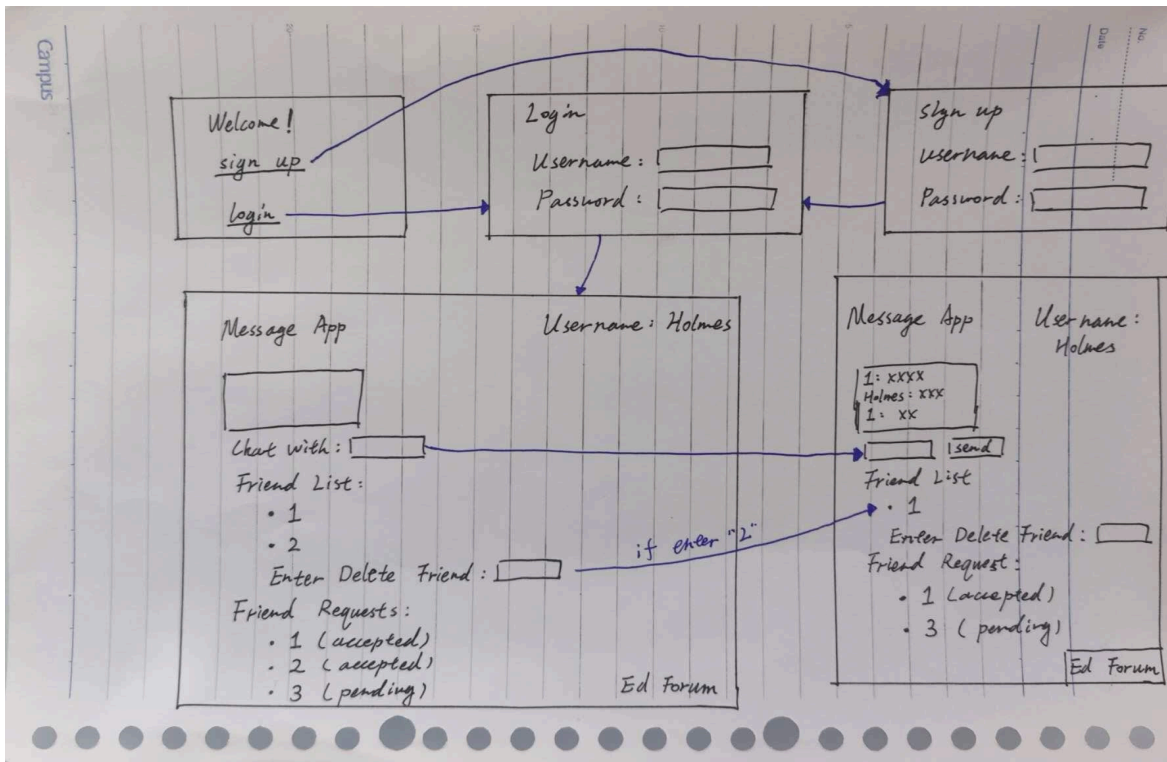 Campus
No.
Date
Welcome!
sign up
login
Login
Username:
Password:
Sign up
username:
Password:
Message App
Username: Holmes
Chat with:
Friend List:
• 1
• 2
Enter Delete Friend:
if enter "2"
Friend Requests:
• 1 (accepted)
• 2 (accepted)
• 3 (pending)
Ed Forum
Message App
Username:
Holmes
1: xxxx
Holmes: xxx
1: xx
send
Friend List
• 1
Enter Delete Friend:
Friend Request:
• 1 (accepted)
• 3 (pending)
Ed Forum